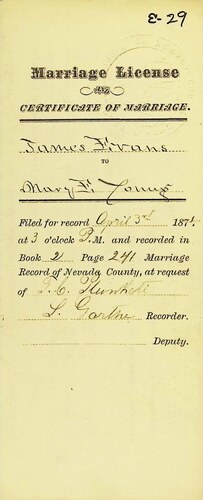 E-29
Marriage License
AND
CERTIFICATE OF MARRIAGE.
James Evans
TO
Mary E.
Filed for record April 3rd 187
at 3 o'clock P.M. and recorded in
Book 2 Page 241 Marriage
Record of Nevada County, at request
of
Recorder.
Deputy.